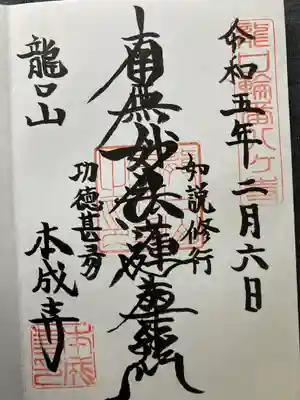 令和五年二月六日
龍口輪番八ヶ寺
如説修行
南無妙法蓮華経
功徳甚多
龍口山
本成寺